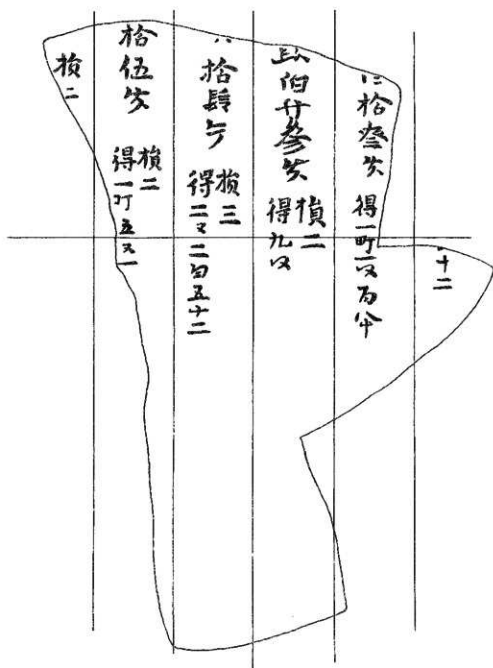 十二
拾叁歩 得一町一段百八十
伯廿叁歩 損二
得九段
拾肆歩 損三
得二段二百五十二
拾伍歩 損二
得一町五段一
損二